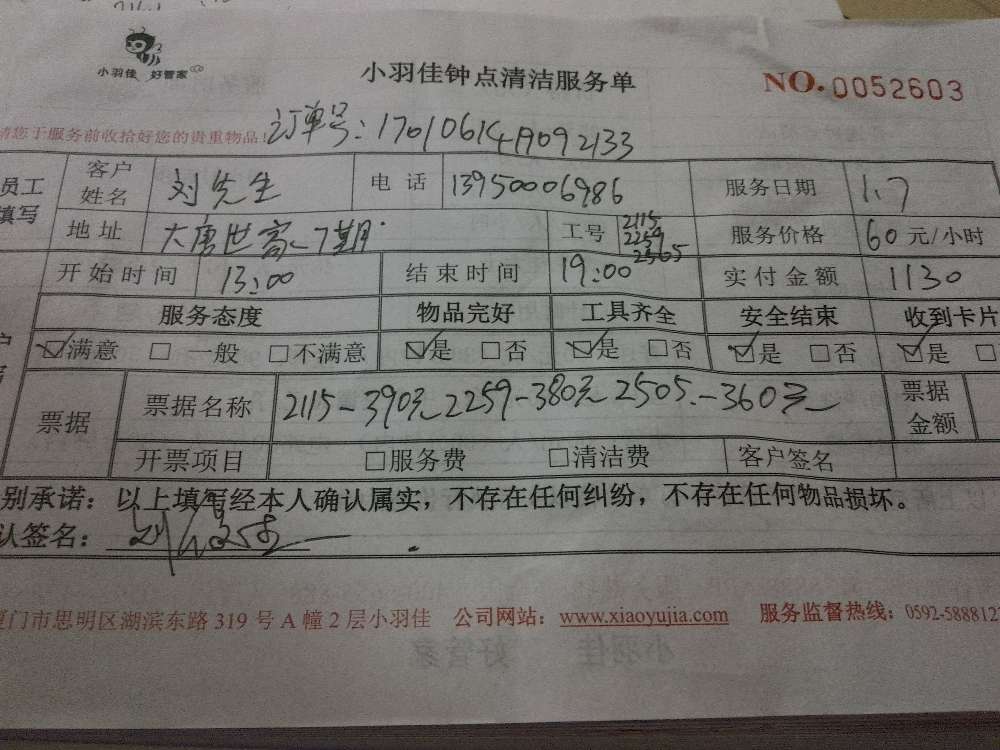 小羽佳 好管家
小羽佳钟点清洁服务单
NO.0052603
请您于服务前收拾好您的贵重物品！
订单号：17010614419092133
员工填写 客户姓名 刘先生 电话 13950006986 服务日期 1.7
地址 大唐世家 7期 工号 2115 2259 2505 服务价格 60元/小时
开始时间 13:00 结束时间 19:00 实付金额 1130
服务态度 物品完好 工具齐全 安全结束 收到卡片
☑满意 □一般 □不满意 ☑是 □否 ☑是 □否 ☑是 □否 ☑是 □
票据 票据名称 2115-390元 2259-380元 2505.-360元 票据金额
开票项目 □服务费 □清洁费 客户签名
别承诺：以上填写经本人确认属实，不存在任何纠纷，不存在任何物品损坏。
认签名：
厦门市思明区湖滨东路 319 号 A 幢 2 层小羽佳 公司网站：www.xiaoyujia.com 服务监督热线：0592-5888127